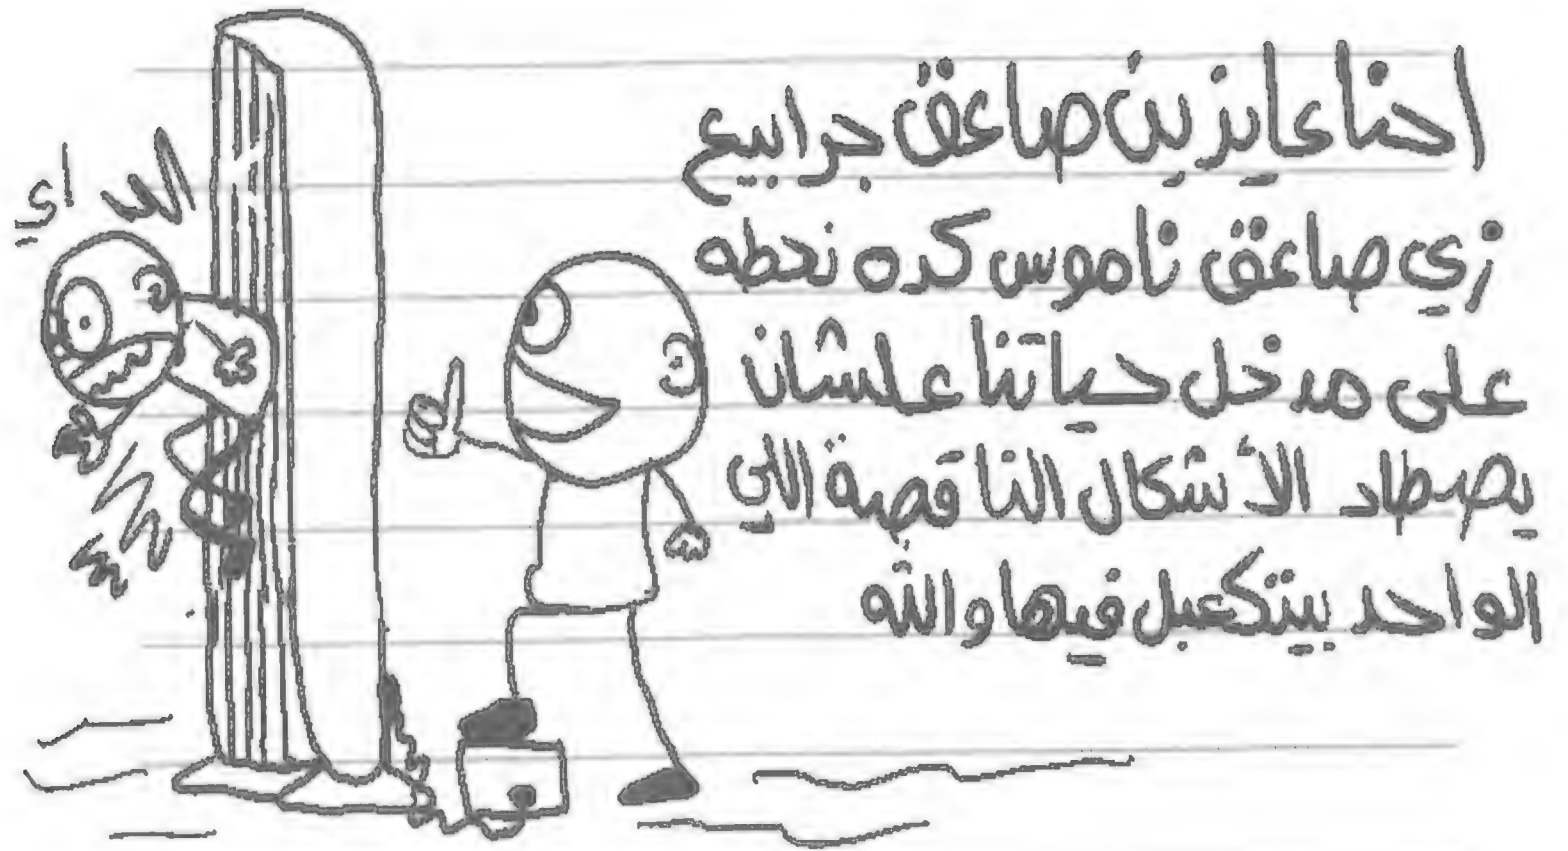 احنا عايزين صاعق جرابيع
زي صاعق ناموس كده نحطه
على مدخل حياتنا علشان
يصطاد الأشكال الناقصة اللي
الواحد بيتكعبل فيها والله